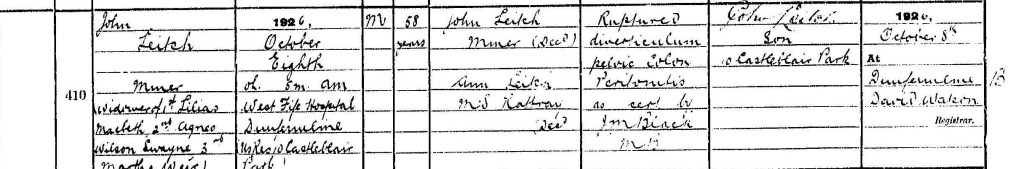 410
John
Leitch
Miner
Widower of 1st Lilias
Macbeth 2nd Agnes
Wilson Swayne 3rd
Martha Weir
1926,
October
Eighth
0h. 5m. AM
West Fife Hospital
Dunfermline
Us Res 10 Castleblair
Park
M
58
years
John Leitch
Miner (Decd)
Ann Leitch
M.S Rattray
(Decd)
Ruptured
diverticulum
pelvic Colon
Peritonitis
as cert by
J M Black
M B
John Leitch
Son
10 Castleblair Park
1926,
October 8th
At
Dunfermline
David Watson
Registrar.